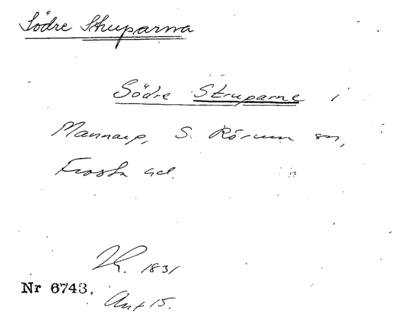 Södre Struparna
Södre Struparne i
Mannarp, S. Rörum sn,
Frosta hd.
1831
Nr 6743.
Ant 15.